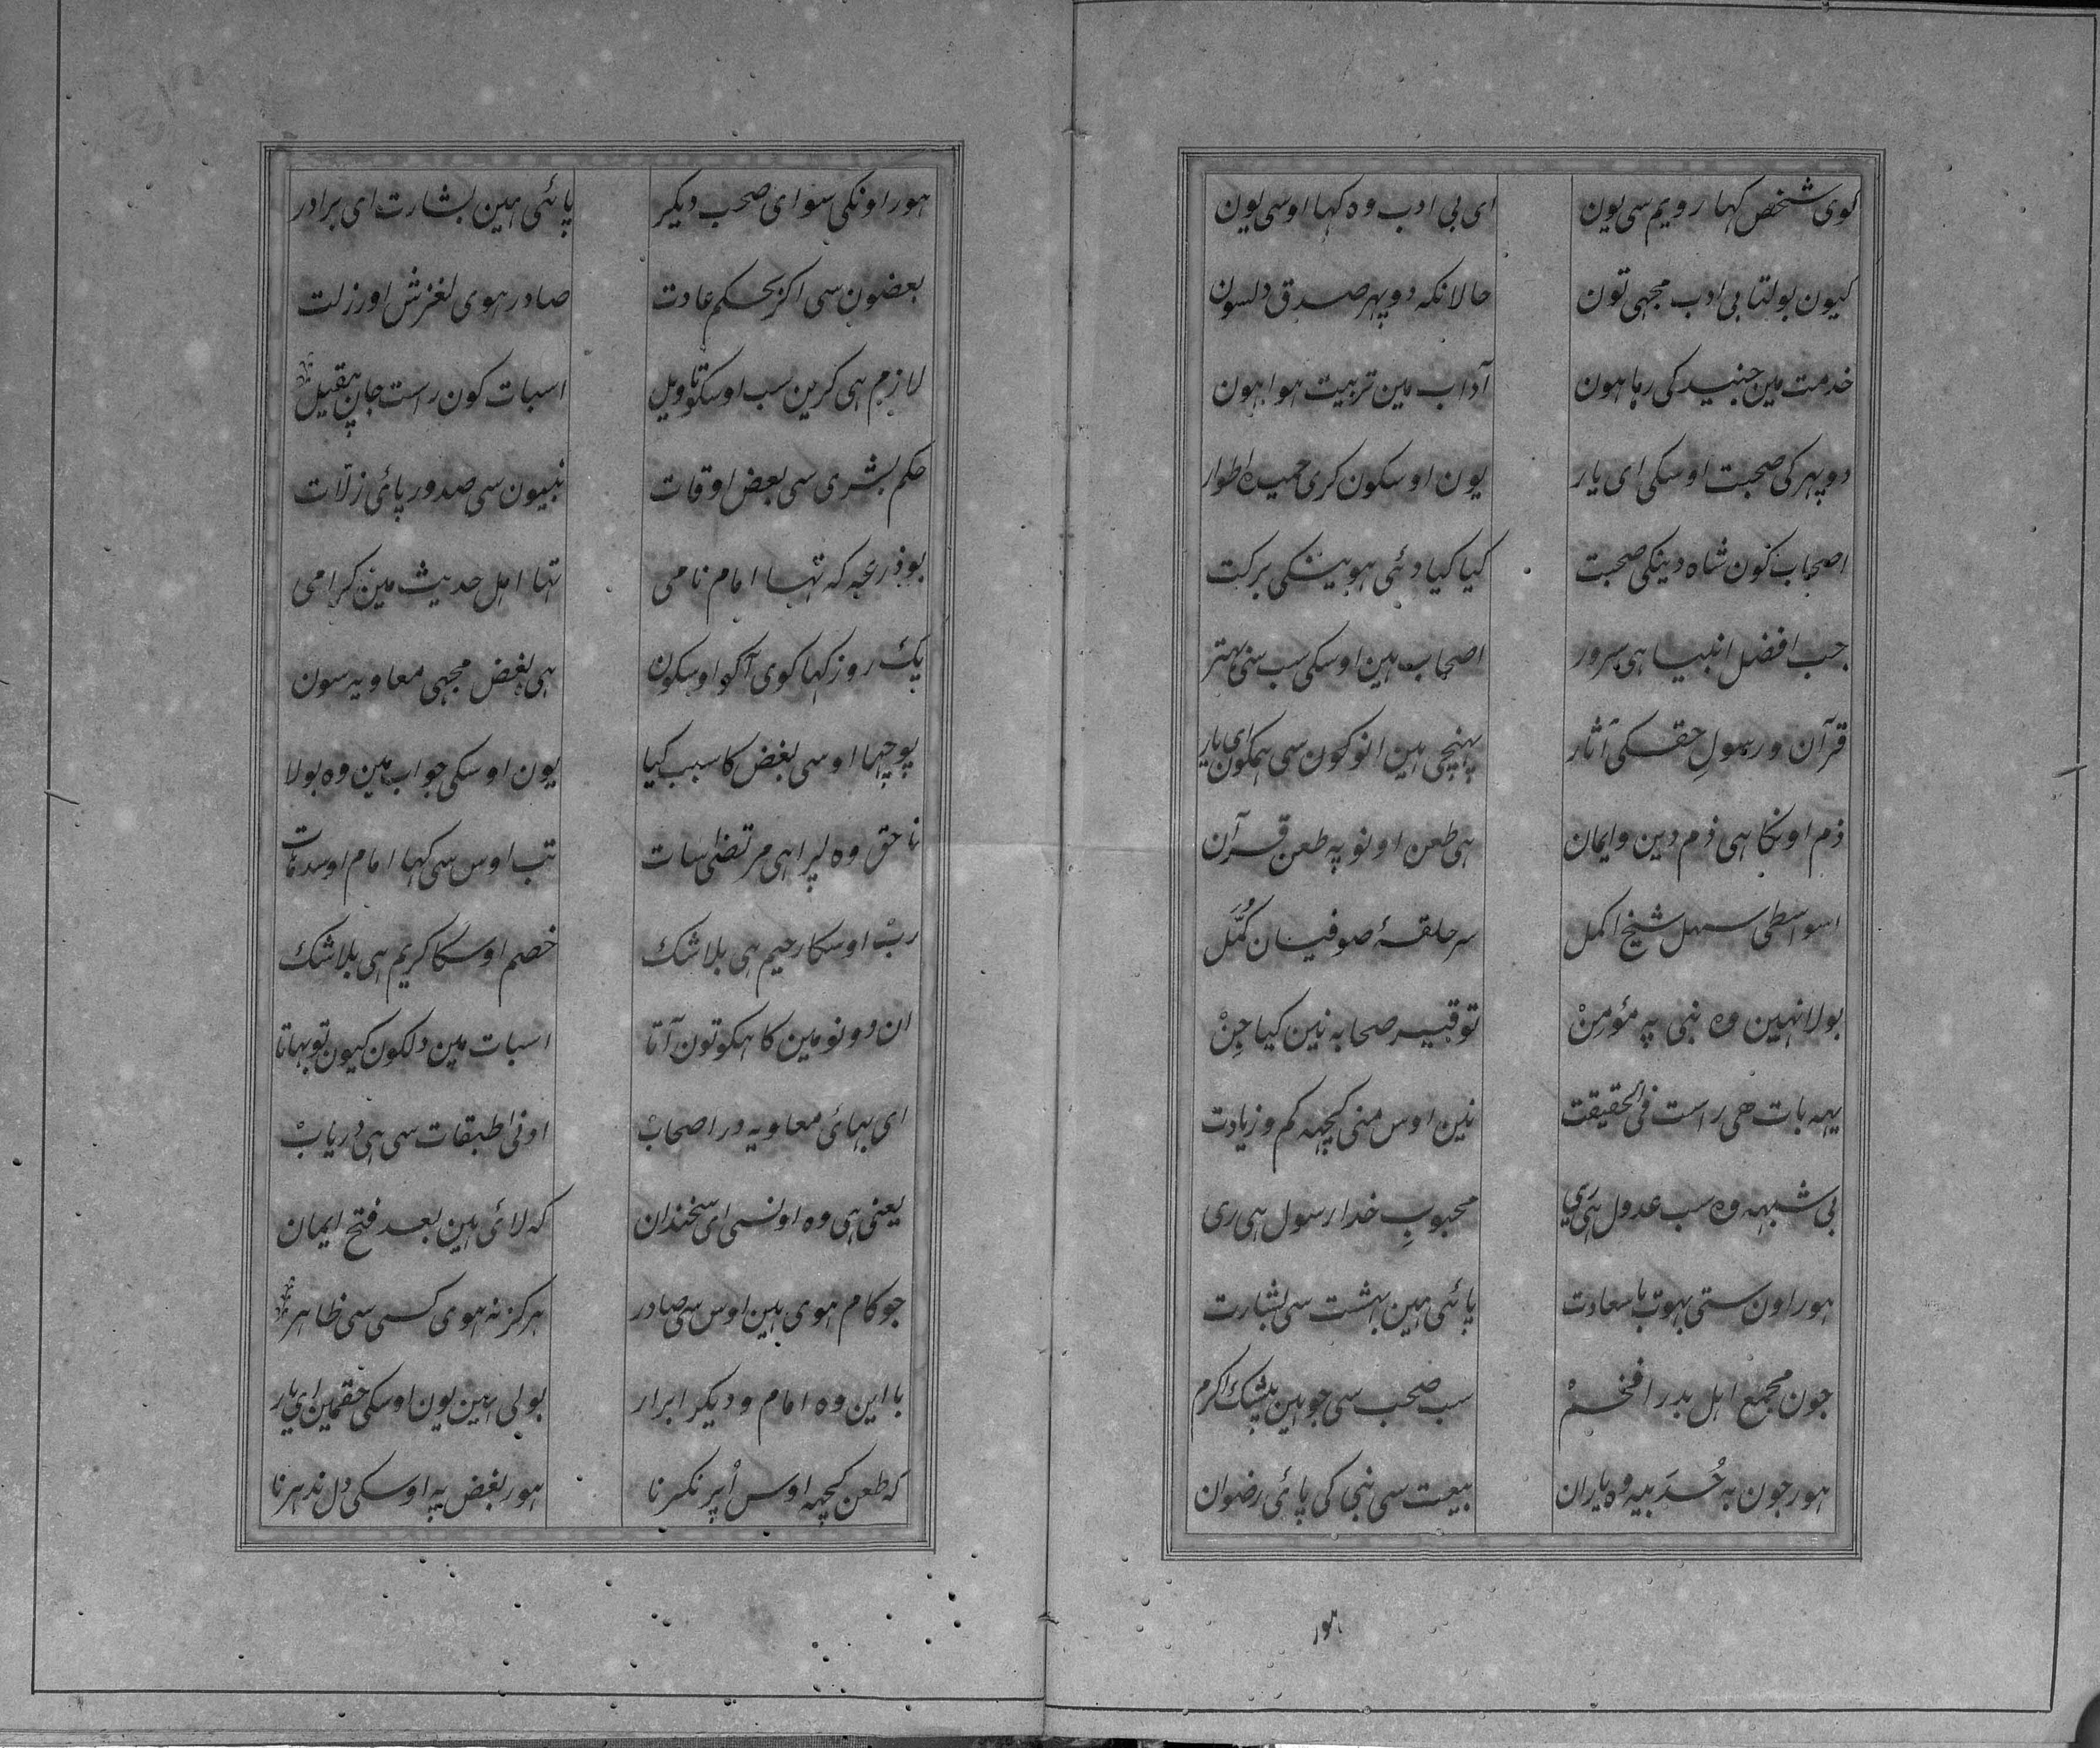 کوی شخص کہا رویم سی یون ای بی ادب وہ کہا اوسی یون
کیون بولتا بی ادب مجہی تون حالانکہ دوپہر صدق دلسون
خدمت مین جنید کی رہا ہون آداب مین تربیت ہوا ہون
دوپہر کی صحبت اوسکی ای یار یون اوسکون کری حمیدہ اطوار
اصحاب کون شاہ دینکی صحبت کیا کیا دئی ہوینکی برکت
جب افضل انبیا ہی سرور اصحاب ہین اوسکی سب سنی بہتر
قرآن و رسولِ حقکی آثار پہنچی ہین انوکون سی ہمکون ای یار
ذم اونکا ہی ذم دین و ایمان ہی طعن اونو پہ طعن قرآن
اسواسطی سہل شیخ اکمل سر حلقۂ صوفیان کُمَّل
بولا نہین وہ نبی پہ مؤمِنْ توقیر صحابہ نین کیا جِنْ
یہہ بات حی راست فی الحقیقت نین اوس منی کچہہ کم و زیادت
بی شبہہ وہ سب عدول ہی ری محبوبِ خدا رسول ہی ری
ہور اون ستی بہوت با سعادت پائی ہین بہشت سی بشارت
جون مجمع اہل بدر افخمْ سب صحب سی جو ہین بیشک اکرم
ہور جون بہ حُدَیبیہ وہ یاران بیعت سی نبی کی پائی رضوان
ہور
ہور اونکی سوای صحب دیگر پائی ہین بشارت ای برادر
بعضون سی اکثر بحکم عادت صادر ہوی لغزش اور زلت
لازم ہی کرین سب اوسکو تاویل اسبات کون راست جان
حکم بشری سی بعض اوقات نبیون سی صدور پائی زلات
بوذرعہ کہ تہا امام نامی تہا اہل حدیث مین گرامی
یک روز کہا کوی آکو اوسکون ہی بغض مجہی معاویہ سون
پوچہا اوسی بغض کا سبب کیا یون اوسکی جواب مین وہ بولا
ناحق وہ لڑا ہی مرتضی سات تب اوس سی کہا امام
ربْ اوسکا رحیم ہی بلا شک خصم اوسکا کریم ہی بلا شک
ان دونو مین کاہکو تون آتا اسبات مین دلکون کیون تو بہاتا
ای بہائی معاویہ در اصحابْ اونی طبقات سی ہی دریابْ
یعنی ہی وہ اونسی ای سخندان کہ لائی ہین بعد فتح ایمان
جو کام ہوی ہین اوس سی صادر ہرگز نہ ہوی کسی سی ظاہر
با این وہ امام و دیگر ابرار بولی ہین یون اوسکی حقمین ای یار
کہ طعن کچہہ اوس اُپر نکرنا ہور بغض پہ اوسکی دل ندہرنا